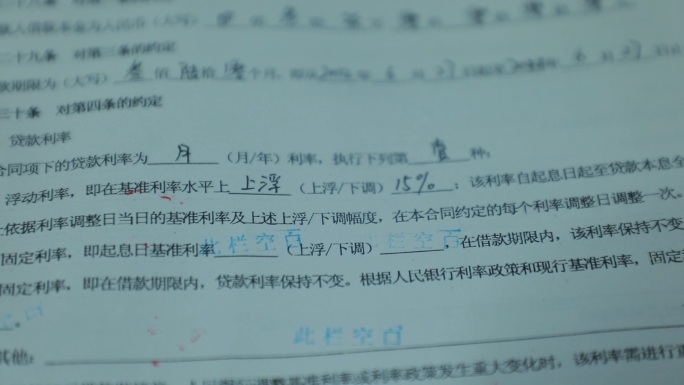 二十九条 对第三条的约定
款期限为（大写）叁佰陆拾零个月
三十条 对第四条的约定
贷款利率
合同项下的贷款利率为 月 （月/年）利率，执行下列第 壹 种：
浮动利率，即在基准利率水平上 上浮 （上浮/下调） 15% ；该利率自起息日起至贷款本息全
依据利率调整日当日的基准利率及上述上浮/下调幅度，在本合同约定的每个利率调整日调整一次。
固定利率，即起息日基准利率 此栏空白 （上浮/下调） 此栏空白 ，在借款期限内，该利率保持不变
固定利率，即在借款期限内，贷款利率保持不变。根据人民银行利率政策和现行基准利率，固定
此栏空白
其他：
调整基准利率或利率政策发生重大变化时，该利率需进行